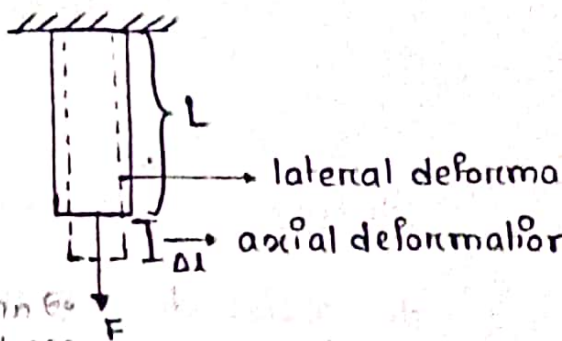 L
lateral deforma
Δl axial deformation
F